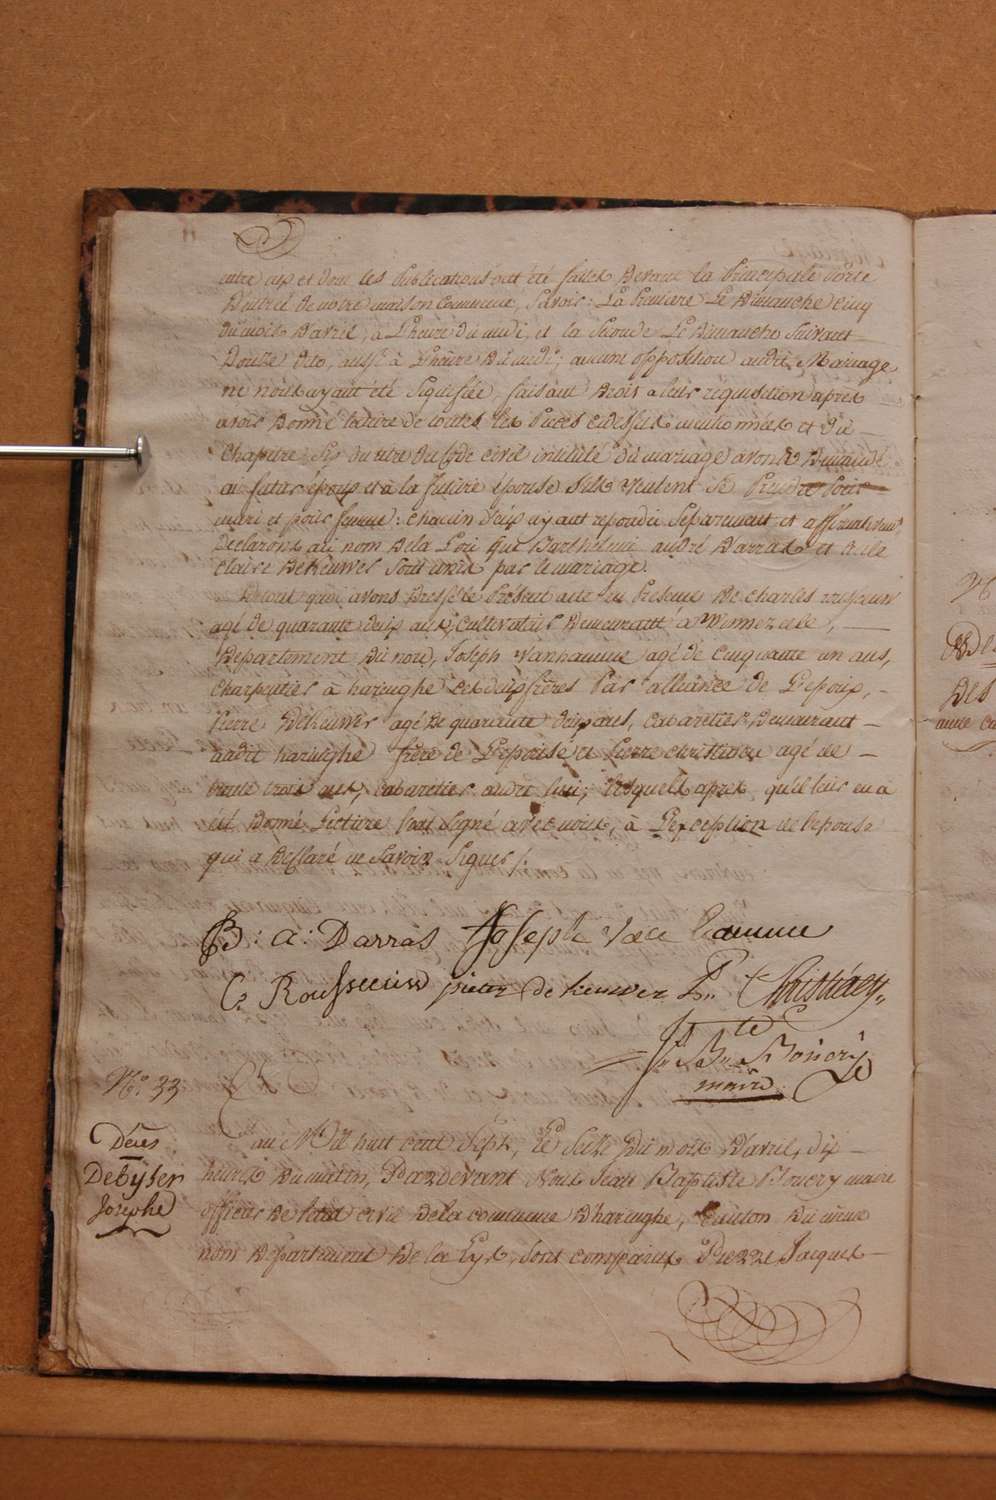 entre eux et dont les Publications ont été faites Devant la Principale Porte
D'entrée De notre maison Commune, Savoir: La Premiere Le Dimanche Cinq
du mois D'avril, à L'heure Du midi, et la Seconde Le Dimanche Suivant
Douze dito, aussi à L'heure Du midi; aucune opposition audit Mariage
ne nous ayant été Signifiée, faisant Droit a leur requisition après
avoir Donné lecture de toutes les Pieces cidessus mentionnées et Du
Chapitre Six du titre Du Code civil intitulé Du mariage avons Demandé
au futur époux et à la future épouse S'ils Veulent Se Prendre Pour
mari et pour femme: chacun D'eux ayant repondu Separement et affirmativem.t
Declarons au nom De la Loi que Barthelemi andré Darras et
Claire DeKeuwer Sont unis par le mariage.
De tout quoi avons Dressé le Présent acte en Presence De Charles rousseeuw
agé de quarante Deux ans, Cultivateur Demeurant à Winnezeele,
Departement Du nord, Joseph Vanhamme agé de Cinquante un ans,
Charpentier à haringhe les deux frères Par alliance de L'epoux,
Pierre DeKeuwer agé De quarante Deux ans, Cabaretier Demeurant
audit haringhe frère de L'epouse et Pierre Christiaen agé de
trente trois ans, cabaretier audit lieu; lesquels après qu'il leur en a
été Donné Lecture l'ont Signé avec nous, à L'exception de l'epouse
qui a Déclaré ne Savoir Signer /.
B: a: Darras Joseph Van hamme
C: Rousseeuw pieter de keuwer P.r Christiaen
J.n B.te Bonery
maire
N.o 33
Décès
DeCyser
Josephe
au Mil huit cent Sept, le Seize Du mois D'avril, dix
heures Du matin, Pardevant Nous Jean Baptiste Bonery maire
officier De l'état civil De la commune D'haringhe, Canton Du même
nom Departement De la Lys, Sont comparus Pierre Jacques